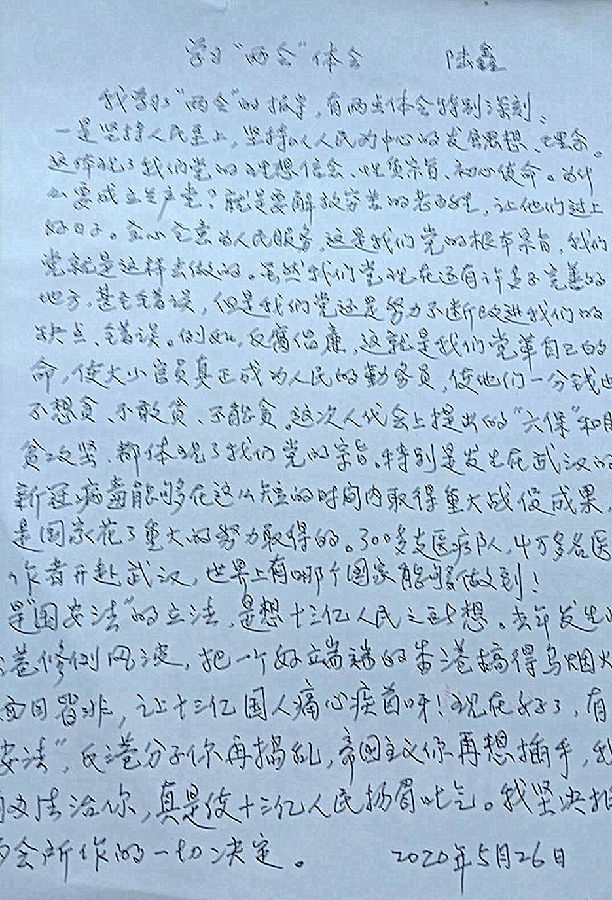 学习"两会"体会 陆鑫
我学习"两会"的报告,有两点体会特别深刻。
一是坚持人民至上,坚持以人民为中心的发展思想、理念。
这体现了我们党的理想信念、性质宗旨、初心使命。为什
么要成立共产党?就是要解放劳苦的老百姓,让他们过上
好日子。全心全意为人民服务,这是我们党的根本宗旨,我们
党就是这样去做的。虽然我们党现在还有许多不完善的
地方,甚至错误,但是我们党还是努力不断改进我们的
缺点、错误。例如,反腐倡廉,这就是我们党革自己的
命,使大小官员真正成为人民的勤务员,使他们一分钱也
不想贪、不敢贪、不能贪。这次人代会上提出的"六保"和脱
贫攻坚,都体现了我们党的宗旨。特别是发生在武汉的
新冠病毒能够在这么短的时间内取得重大战役成果,
是国家花了重大的努力取得的。300多支医疗队,4万多名医
作者开赴武汉,世界上有哪个国家能够做到!
是"国安法"的立法,是想十三亿人民之所想。去年发生的
港修例风波,把一个好端端的香港搞得乌烟
面目皆非,让十三亿国人痛心疾首呀!现在好了,有
安法",反港分子你再捣乱,帝国主义你再想插手,我
法治你,真是使十三亿人民扬眉吐气。我坚决拥
两会所作的一切决定。 2020年5月26日